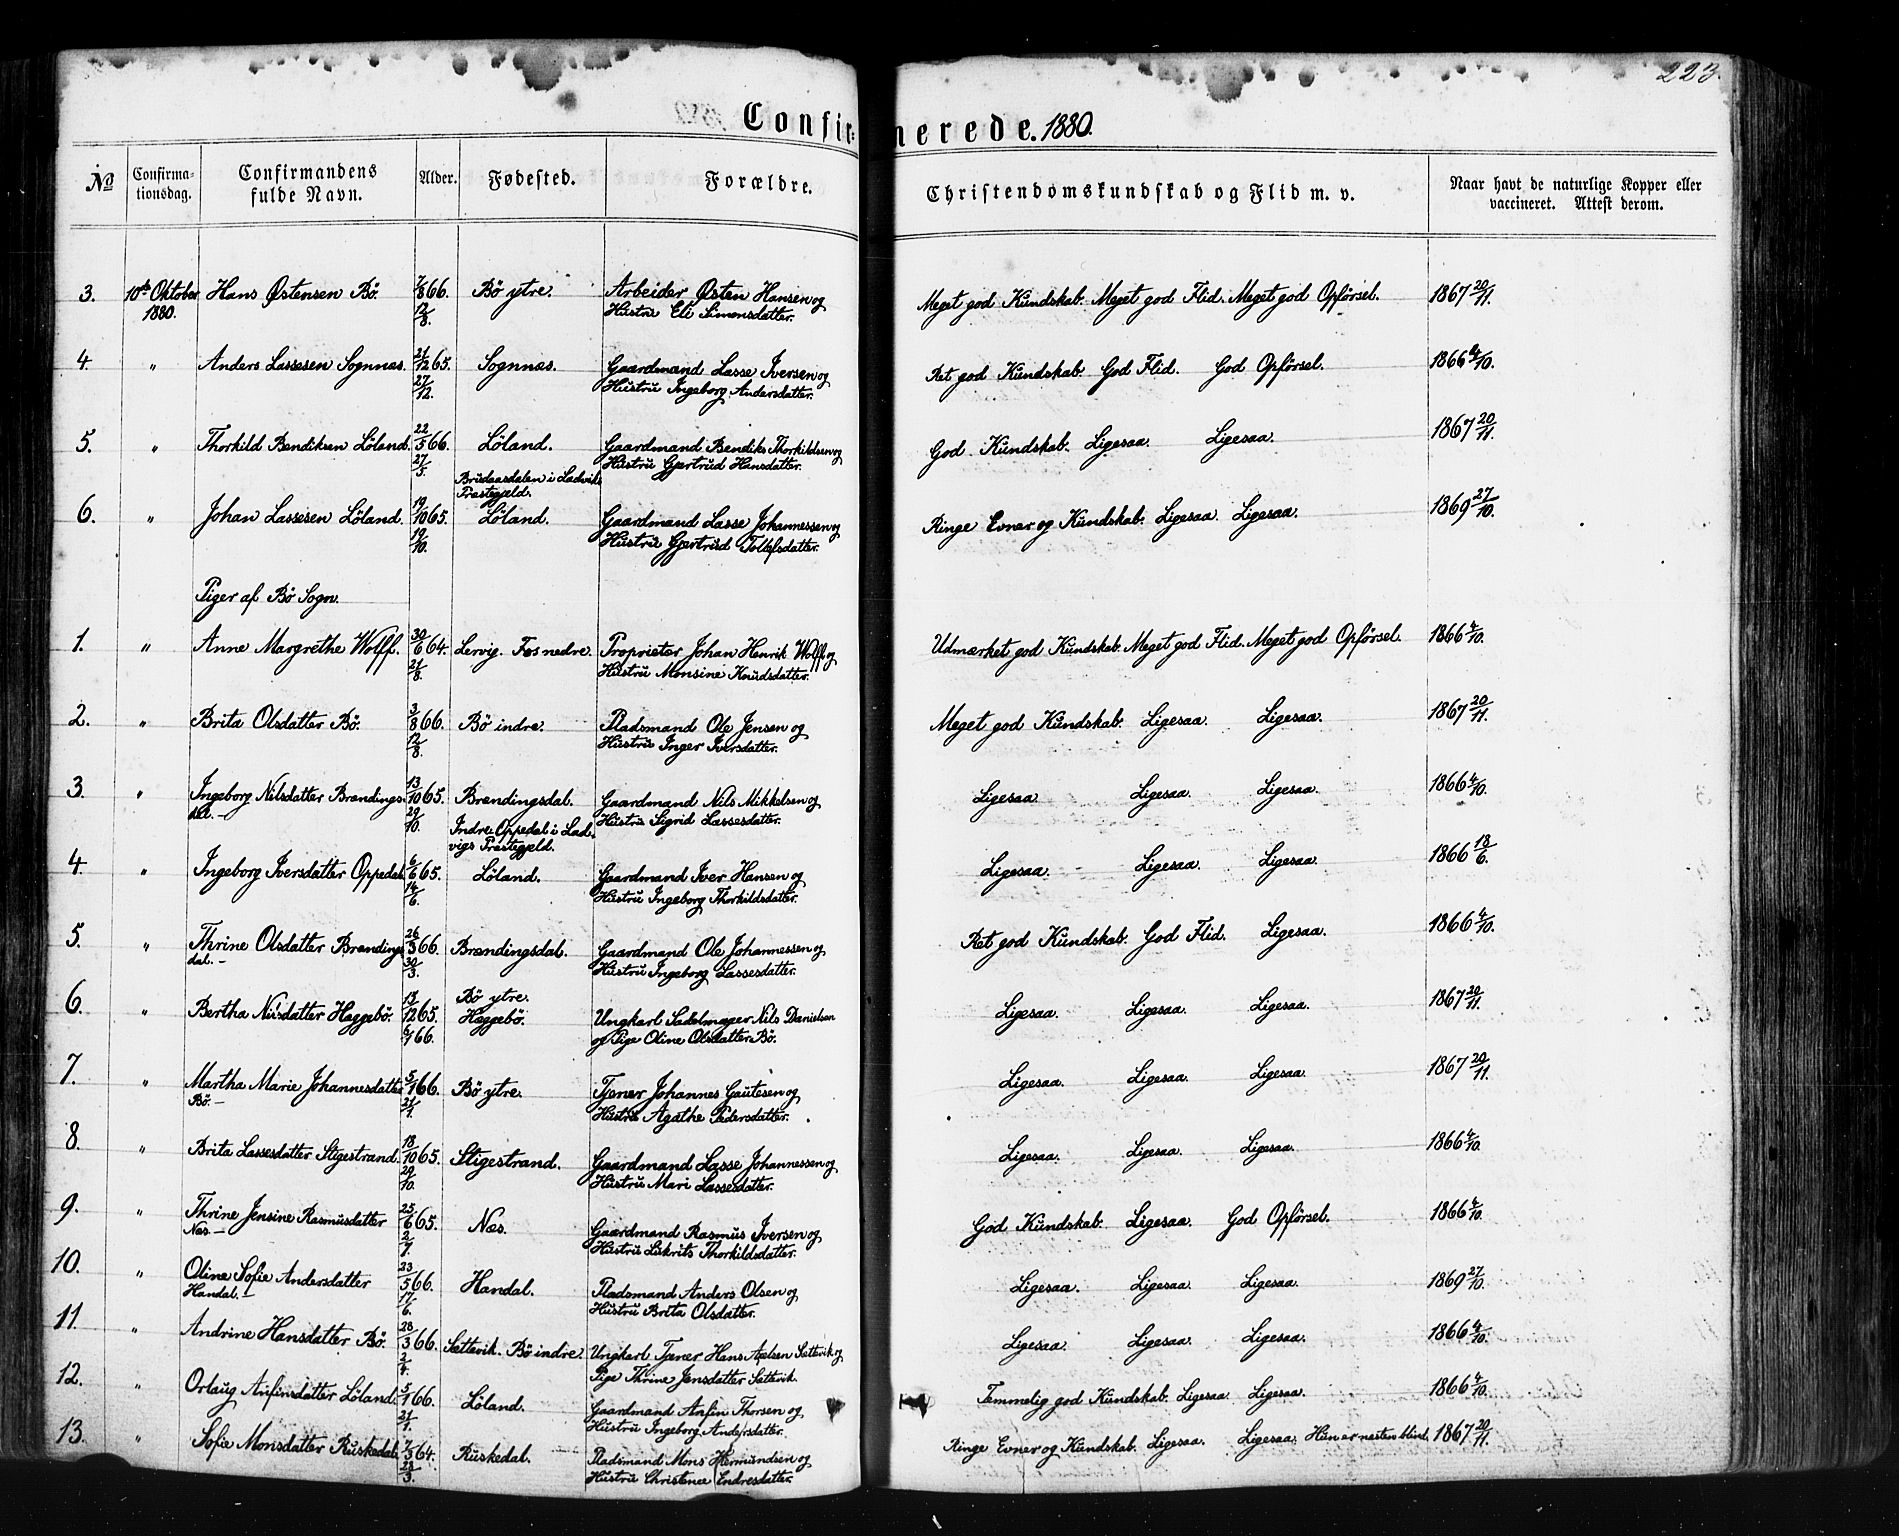 223.
Confirmerede. 1880.
No
Confirma-
tionsdag.
Confirmandens
fulde Navn.
Alder.
Fødested.
Forældre.
Christendomskundskab og Flid m. v.
Naar havt de naturlige Kopper eller
vaccineret. Attest derom.
3. 10de Oktober Hans Østensen Bö. 7/8 66. Bö ytre. Arbeider Østen Hansen og Meget god Kundskab. Meget god Flid. Meget god Opförsel. 1867 20/11.
1880. 12/8. Hustru Eli Simonsdatter.
4. " Anders Lassesen Sognnæs. 21/12 65. Sognnæs. Gaardmand Lasse Iversen og Ret god Kundskab. God Flid. God Opförsel. 1866 4/10.
27/12. Hustru Ingeborg Andersdatter.
5. " Thorkild Bendiksen Löland. 22/5 66. Löland. Gaardmand Bendiks Thorkildsen og God Kundskab. Ligesaa. Ligesaa. 1867 20/11.
27/5. Hustru Gjertrud Hansdatter.
Brudaasdalen i Ladviks
Præstegjeld.
6. " Johan Lassesen Löland. 19/10 65. Löland. Gaardmand Lasse Johannessen og Ringe Evner og Kundskab. Ligesaa. Ligesaa. 1869 27/10.
19/10. Hustru Gjertrud Tollefsdatter.
Piger af Bö Sogn.
1. " Anne Margrethe Wolff. 30/6 64. Lervig. Fæs nedre. Proprietær Johan Henrik Wolff og Udmærket god Kundskab. Meget god Flid. Meget god Opförsel. 1866 4/10.
21/8. Hustru Monsine Knudsdatter.
2. " Brita Olsdatter Bö. 3/8 66. Bö indre. Pladsmand Ole Jensen og Meget god Kundskab. Ligesaa. Ligesaa. 1867 20/11.
12/8. Hustru Inger Iversdatter.
3. " Ingeborg Nilsdatter Brændings- 13/10 65. Brændingsdal. Gaardmand Nils Mikkelsen og Ligesaa. Ligesaa. Ligesaa. 1866 4/10.
dal. 29/10. Hustru Sigrid Lassesdatter.
Indre Oppedal i Lad-
vigs Præstegjeld.
4. " Ingeborg Iversdatter Oppedal. 6/6 65. Löland. Gaardmand Iver Hansen og Ligesaa. Ligesaa. Ligesaa. 1866 18/6.
14/6. Hustru Ingeborg Thorkildsdatter.
5. " Thrine Olsdatter Brændings- 26/3 66. Brændingsdal. Gaardmand Ole Johannessen og Ret god Kundskab. God Flid. Ligesaa. 1866 4/10.
dal. 30/3. Hustru Ingeborg Lassesdatter.
Bö ytre.
6. " Bertha Nilsdatter Heggebö. 13/12 65. Heggebö. Ungkarl Sadelmager Nils Danielsen Ligesaa. Ligesaa. Ligesaa. 1867 20/11.
6/1 66. og Pige Oline Olsdatter Bö.
7. " Martha Marie Johannesdatter 5/1 66. Bö ytre. Tjener Johannes Gautesen og Ligesaa. Ligesaa. Ligesaa. 1867 20/11.
Bö. 21/1. Hustru Agathe Pedersdatter.
8. " Brita Lassesdatter Stigestrand. 18/10 65. Stigestrand. Gaardmand Lasse Johannessen og Ligesaa. Ligesaa. Ligesaa. 1866 4/10.
29/10. Hustru Mari Lassesdatter.
9. " Thrine Jensine Rasmusdatter 25/6 65. Næs. Gaardmand Rasmus Iversen og God Kundskab. Ligesaa. God Opförsel. 1866 4/10.
Næs. 2/7. Hustru Thorkildsdatter.
10. " Oline Sofie Andersdatter 23/5 66. Handal. Pladsmand Anders Olsen og Ligesaa. Ligesaa. Ligesaa. 1869 27/10.
Handal. 17/6. Hustru Brita Olsdatter.
11. " Andrine Hansdatter Bö. 28/3 66. Sættevik. Bö indre. Ungkarl Tjener Hans Axelsen Sættevik og Ligesaa. Ligesaa. Ligesaa. 1866 4/10.
2/4. Pige Thrine Jensdatter Sættevik.
12. " Orlaug Anfinsdatter Löland. 5/1 66. Löland. Gaardmand Anfin Thorsen og Temmelig god Kundskab. Ligesaa. Ligesaa. 1866 4/10.
21/1. Hustru Ingeborg Andersdatter.
13. " Sofie Monsdatter Ruskedal. 7/3 64. Ruskedal. Pladsmand Mons Hermundsen og Ringe Evner og Kundskab. Ligesaa. Ligesaa. Hun er næsten blind. 1867 20/11.
28/3. Hustru Christence Endresdatter.